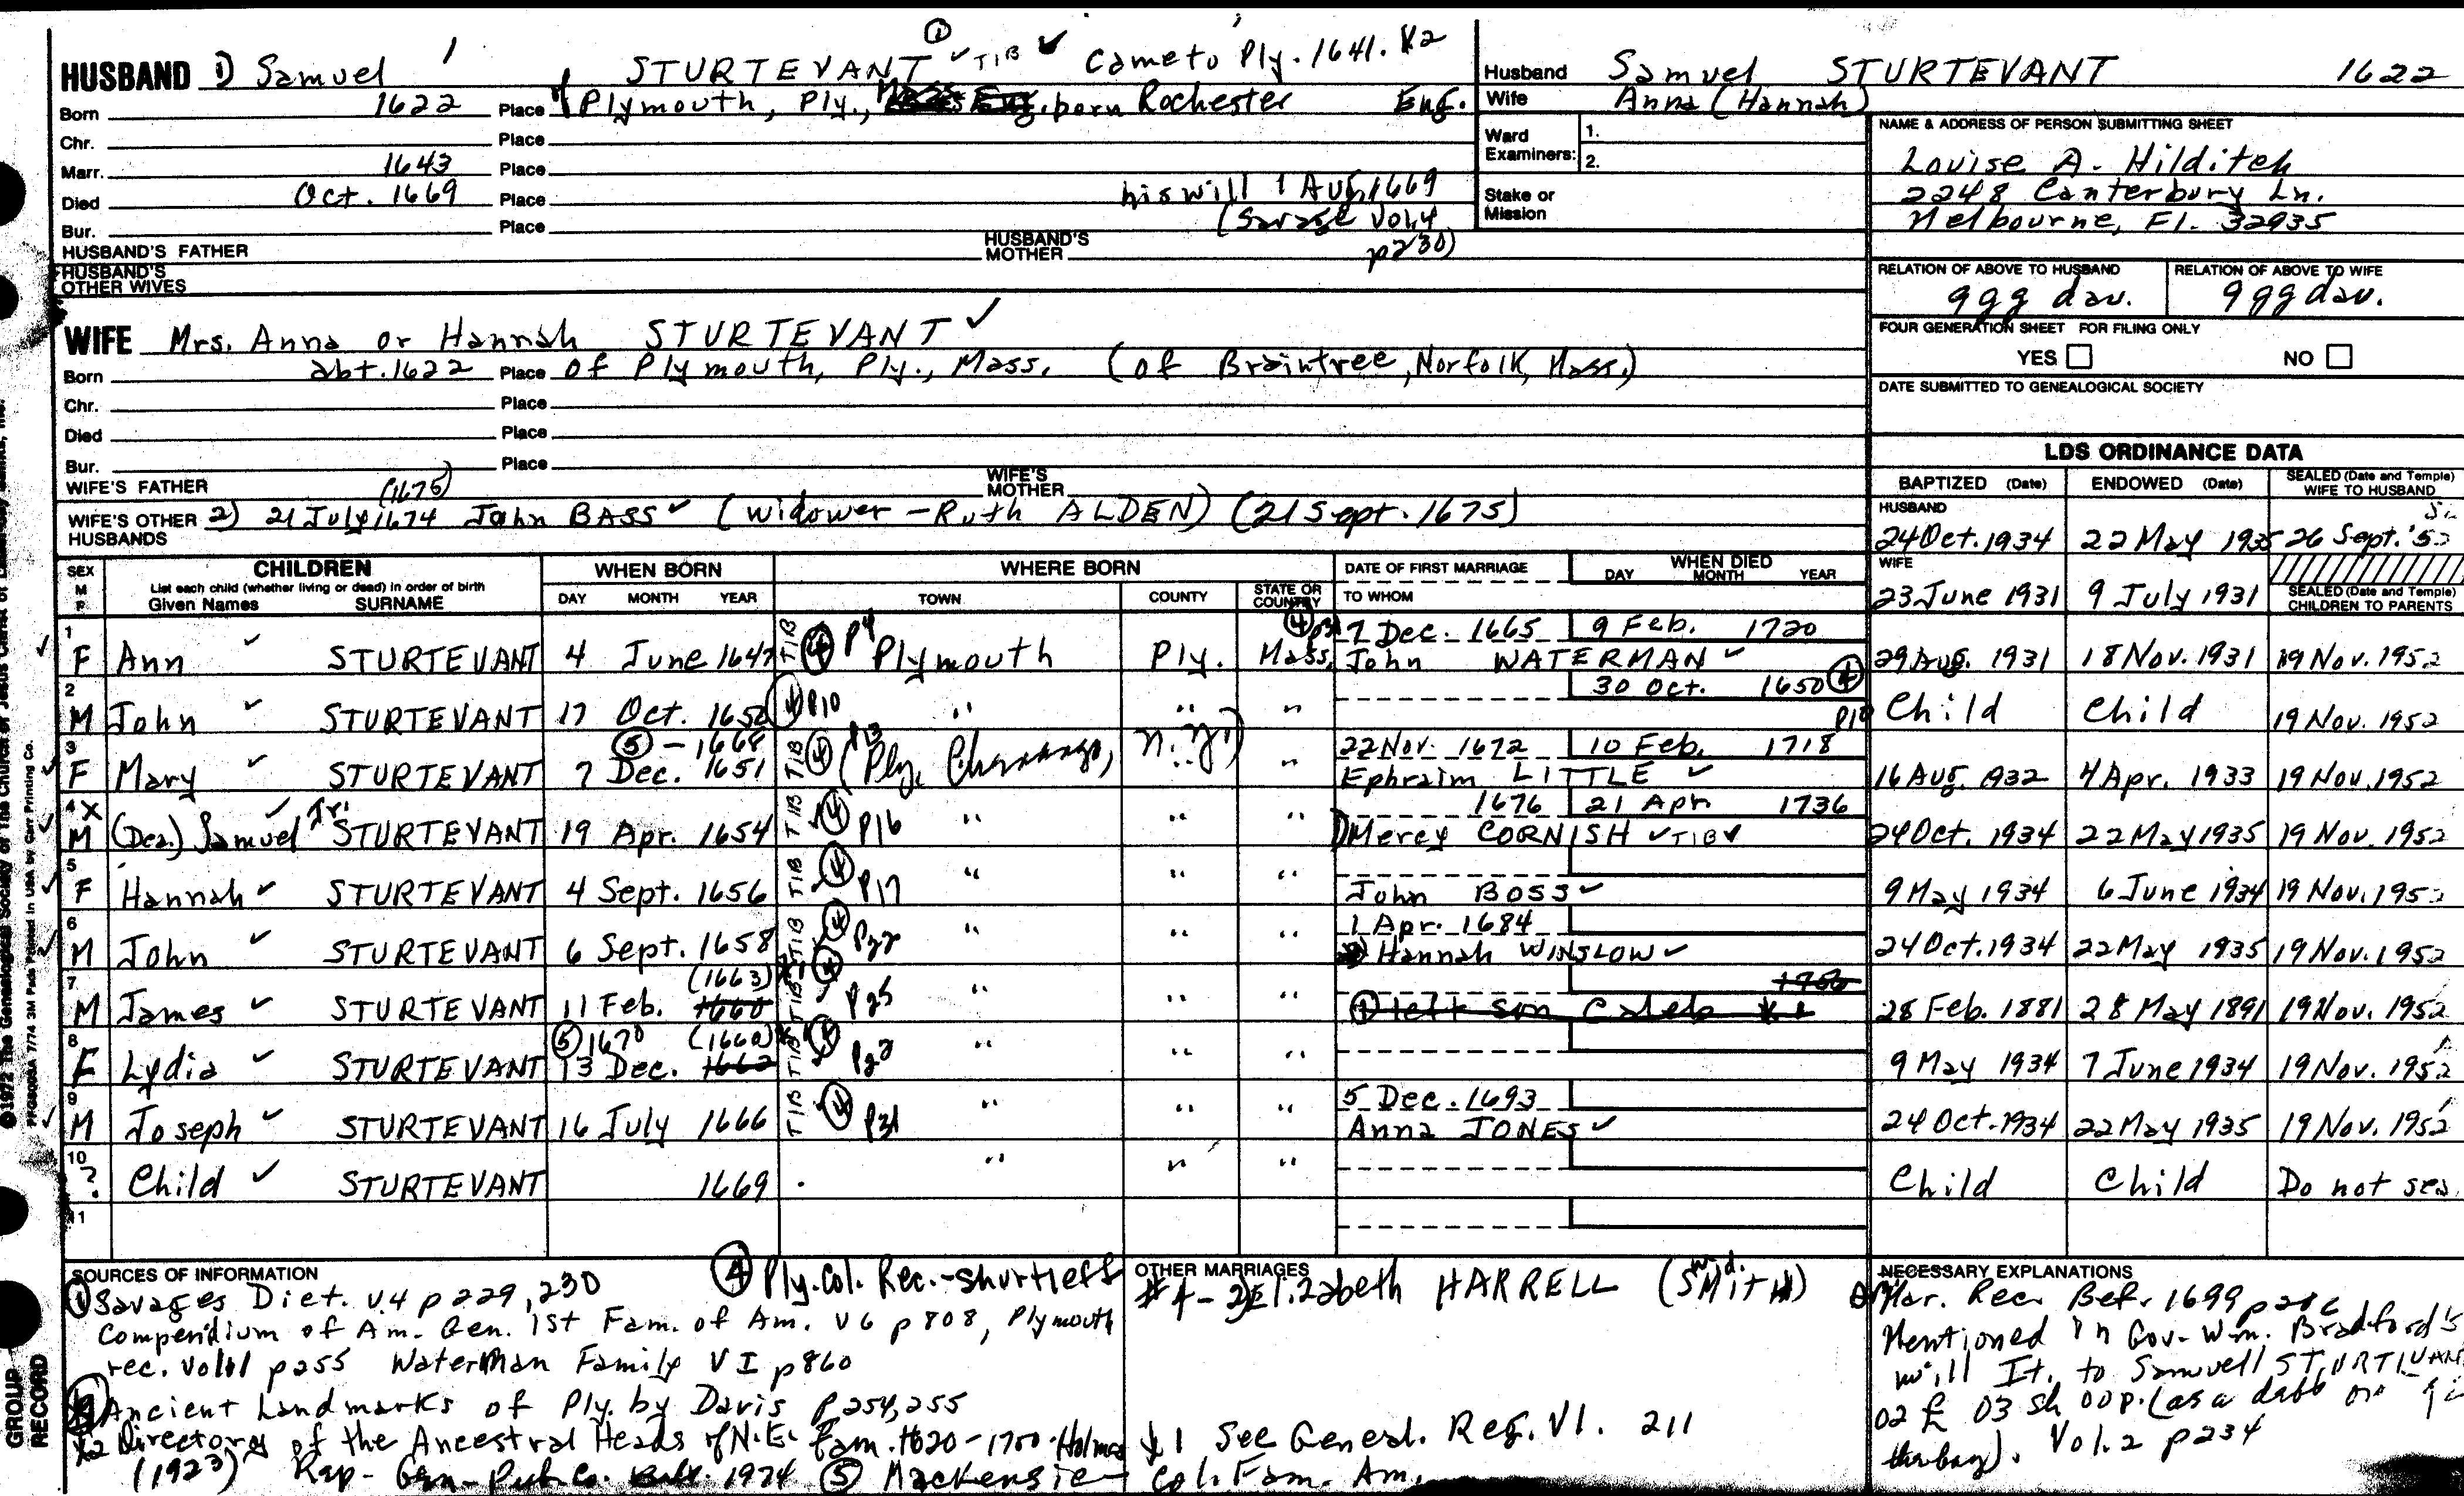 HUSBAND 1) Samuel 1 STURTEVANT ① ✓ TIB ✓ Came to Ply. 1641. X2
Born 1622 Place of Plymouth, Ply., born Rochester Eng.
Chr. Place
Marr. 1643 Place
Died Oct. 1669 Place his will 1 Aug 1669
Bur. Place (Savage Vol. 4 p230)
HUSBAND'S FATHER HUSBAND'S MOTHER
HUSBAND'S OTHER WIVES
WIFE Mrs. Anna or Hannah STURTEVANT ✓
Born abt. 1622 Place of Plymouth, Ply., Mass. (of Braintree, Norfolk, Mass.)
Chr. Place
Died Place
Bur. Place
WIFE'S FATHER WIFE'S MOTHER
(1675)
WIFE'S OTHER HUSBANDS 2) 21 July 1674 John BASS ✓ (widower - Ruth ALDEN) (21 Sept. 1675)
Husband Samuel STURTEVANT 1622
Wife Anna (Hannah)
Ward Examiners: 1.
2.
Stake or Mission
NAME & ADDRESS OF PERSON SUBMITTING SHEET
Louise A. Hilditch
2248 Canterbury Ln.
Melbourne, Fl. 32935
RELATION OF ABOVE TO HUSBAND RELATION OF ABOVE TO WIFE
ggg dau. ggg dau.
FOUR GENERATION SHEET FOR FILING ONLY
YES NO
DATE SUBMITTED TO GENEALOGICAL SOCIETY
LDS ORDINANCE DATA
BAPTIZED (Date) ENDOWED (Date) SEALED (Date and Temple) WIFE TO HUSBAND
HUSBAND
24 Oct. 1934 22 May 1935 26 Sept.
WIFE
23 June 1931 9 July 1931 SEALED (Date and Temple) CHILDREN TO PARENTS
SEX M F CHILDREN WHEN BORN WHERE BORN DATE OF FIRST MARRIAGE WHEN DIED
List each child (whether living or dead) in order of birth
Given Names SURNAME DAY MONTH YEAR TOWN COUNTY STATE OR COUNTRY TO WHOM DAY MONTH YEAR
1 TIB ④ p4 ④ 7 Dec. 1665 9 Feb. 1720
F Ann ✓ STURTEVANT 4 June 1647 Plymouth Ply. Mass. John WATERMAN ✓ 29 Aug. 1931 18 Nov. 1931 19 Nov. 1952
2 30 Oct. 1650 ④
M John ✓ STURTEVANT 17 Oct. 1650 ④ p10 " " " p10 Child Child 19 Nov. 1952
3 ⑤ - 1668 TIB ④ p13 22 Nov. 1672 10 Feb. 1718
F Mary ✓ STURTEVANT 7 Dec. 1651 (Ply. Chenango, N.Y.) " Ephraim LITTLE ✓ 16 Aug. 1932 4 Apr. 1933 19 Nov. 1952
4 X 1676 21 Apr 1736
M (Dea.) Samuel Jr. STURTEVANT 19 Apr. 1654 TIB ④ p16 " " " 1) Mercy CORNISH ✓ TIB ✓ 24 Oct. 1934 22 May 1935 19 Nov. 1952
5
F Hannah ✓ STURTEVANT 4 Sept. 1656 TIB ④ p17 " " " John BOSS ✓ 9 May 1934 6 June 1934 19 Nov. 1952
6 1 Apr. 1684
M John ✓ STURTEVANT 6 Sept. 1658 TIB ④ p22 " " " Hannah WINSLOW ✓ 24 Oct. 1934 22 May 1935 19 Nov. 1952
7 (1663) 1756
M James ✓ STURTEVANT 11 Feb. 1660 TIB ④ p25 " " " ① left son Caleb X1 28 Feb. 1881 28 May 1891 19 Nov. 1952
8 ⑤ 1670 (1660)
F Lydia ✓ STURTEVANT 13 Dec. 1662 TIB ④ p22 " " " 9 May 1934 7 June 1934 19 Nov. 1952
9 5 Dec. 1693
M Joseph ✓ STURTEVANT 16 July 1666 TIB ④ p31 " " " Anna JONES ✓ 24 Oct. 1934 22 May 1935 19 Nov. 1952
10
? Child ✓ STURTEVANT 1669 " " " Child Child Do not seal
11
SOURCES OF INFORMATION ④ Ply. Col. Rec. - Shurtleff
① Savages Dict. V.4 p 229, 230
Compendium of Am. Gen. 1st Fam. of Am. V6 p 808, Plymouth
rec. Vol 1 p255 Waterman Family V I p 860
Ancient Landmarks of Ply. by Davis p 254, 255
X2 Directory of the Ancestral Heads of N.E. Fam. 1620-1700 Holmes
(1923) Rep - Gen - Pub Co. Balt. 1974 ⑤ Mackenzie Col. Fam. Am.
OTHER MARRIAGES
#4 - 2) Elizabeth HARRELL (wid. SMITH)
X1 See Geneal. Reg. VI. 211
NECESSARY EXPLANATIONS
Mar. Rec. Bef. 1699 p206
Mentioned in Gov. Wm. Bradford's
will It. to Samuell STURTEVANT
02 £ 03 sh 00 p. (as a debt
Vol. 2 p234
GROUP RECORD
©1972 The Genealogical Society of The Church of Jesus Christ of Latter-day Saints, Inc.
PFGS0008A 7/74 3M Pads Printed in USA by Carr Printing Co.